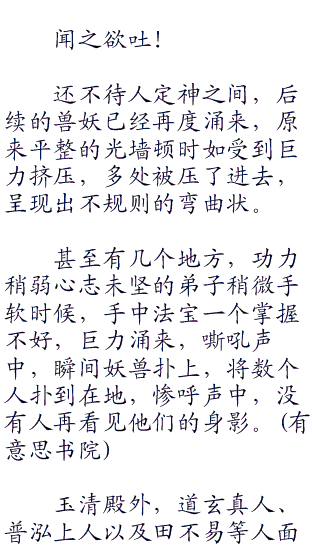 闻之欲吐！
还不待人定神之间，后
续的兽妖已经再度涌来，原
来平整的光墙顿时如受到巨
力挤压，多处被压了进去，
呈现出不规则的弯曲状。
甚至有几个地方，功力
稍弱心志未坚的弟子稍微手
软时候，手中法宝一个掌握
不好，巨力涌来，嘶吼声
中，瞬间妖兽扑上，将数个
人扑到在地，惨呼声中，没
有人再看见他们的身影。(有
意思书院)
玉清殿外，道玄真人、
普泓上人以及田不易等人面